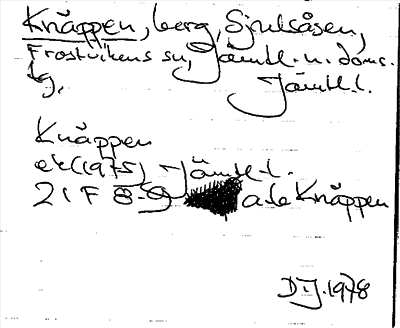 Knäppen, berg, Sjulsåsen,
Frostvikens sn, Jämtl. n. doms.
tg, Jämtl.l.
Knäppen
ek(1975) Jämtl.l.
21F 8-9 a-le Knäppen
D.J. 1978